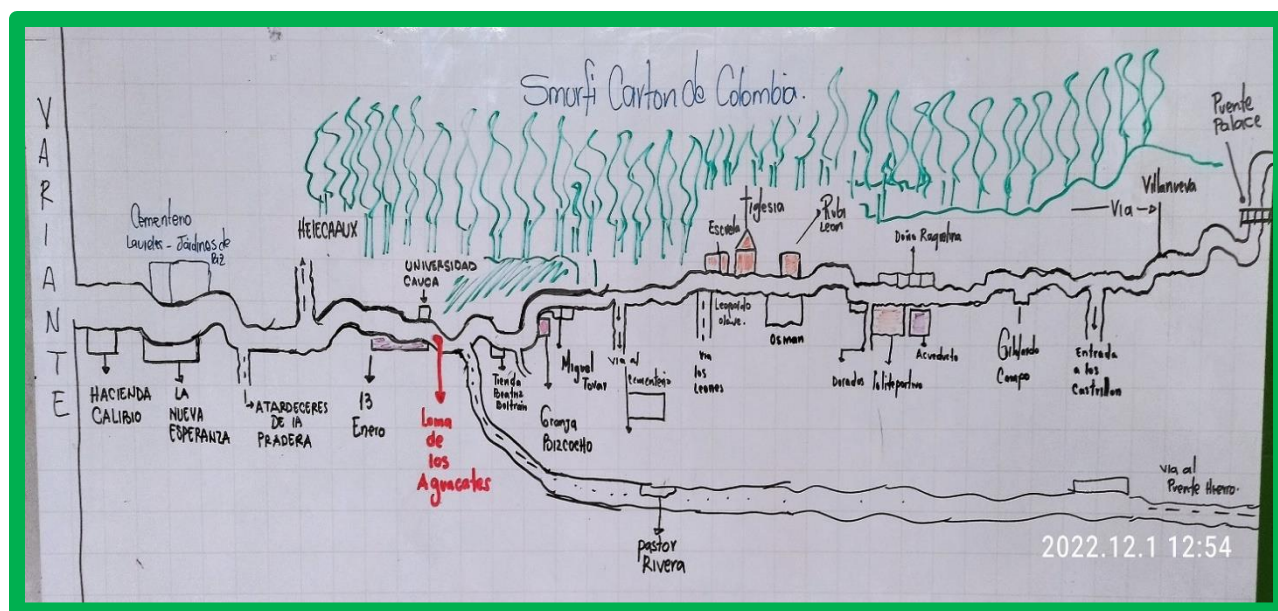 Smurfi Carton de Colombia.
VARIANTE
Puente
Palace
Villanueva
Via
Cementerio
Laureles - Jardines de
HELECAAUX
UNIVERSIDAD
CAUCA
Escuela
Iglesia
Rubi
Leon
Doña
HACIENDA
CALIBIO
LA
NUEVA
ESPERANZA
ATARDECERES
DE LA
PRADERA
13
Enero
Loma
de
los
Aguacates
Tienda
Beatriz
Beltrán
Granja
BIZCOCHO
Miguel
Tovar
Via al
Cementerio
Leopoldo
Via
los
Leones
OSMAN
Dorados
Polideportivo
Acueducto
Campo
Entrada
a los
Castrillon
Pastor
Rivera
Via al
Puente Hierro.
2022.12.1 12:54